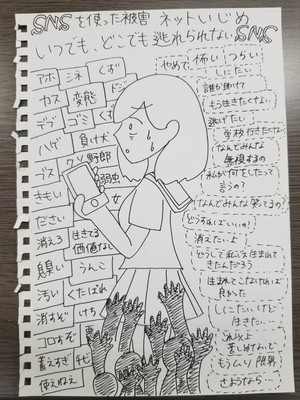 SNSを使った被害 ネットいじめ
いつでも、どこでも逃れられないSNS
アホ
シネ
くず
カス
変態
ドジ
デブ
ゴミ
くず
ハゲ
負け犬
ブス
クソ野郎
きもい
弱虫
ださい
女
消えろ
生きてる価値なし
臭い
うんこ
汚い
くたばれ
消すぞ
けち
コロすぞ
悪
蓄えすぎ
チビ
使えねえ
やめて、怖い つらい
しにたい
誰か助けて
もう生きたくない
逃げたい
学校行きたくない
なんでみんな無視するの
私が何をしたって言うの?
なんでみんな笑ってるの?
どうすればいいの?
消えたいよ
どうして私は生まれてきたんだろう
生まれてこなければ良かった
しにたいけど生きたい…
これ以上苦しめないで
もうムリ 限界
さようなら…